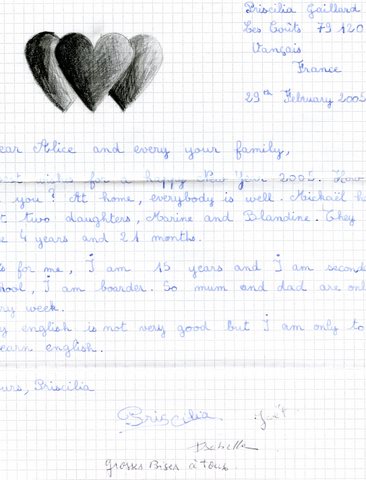 Priscilia Gaillard
Les Goûts 79 120
Vançais
France
29th February 2005
ear Alice and every your family,
t wishes for a happy New Year 2005. How
you? At home, everybody is well. Michaël h
t two daughters, Marine and Blandine. They
e 4 years and 21 months.
s for me, I am 15 years and I am second
hool, I am boarder. So mum and dad are onl
ry week.
y english is not very good but I am only to
earn english.
urs, Priscilia
Priscilia
Isabelle
Grosses Bises à tous.